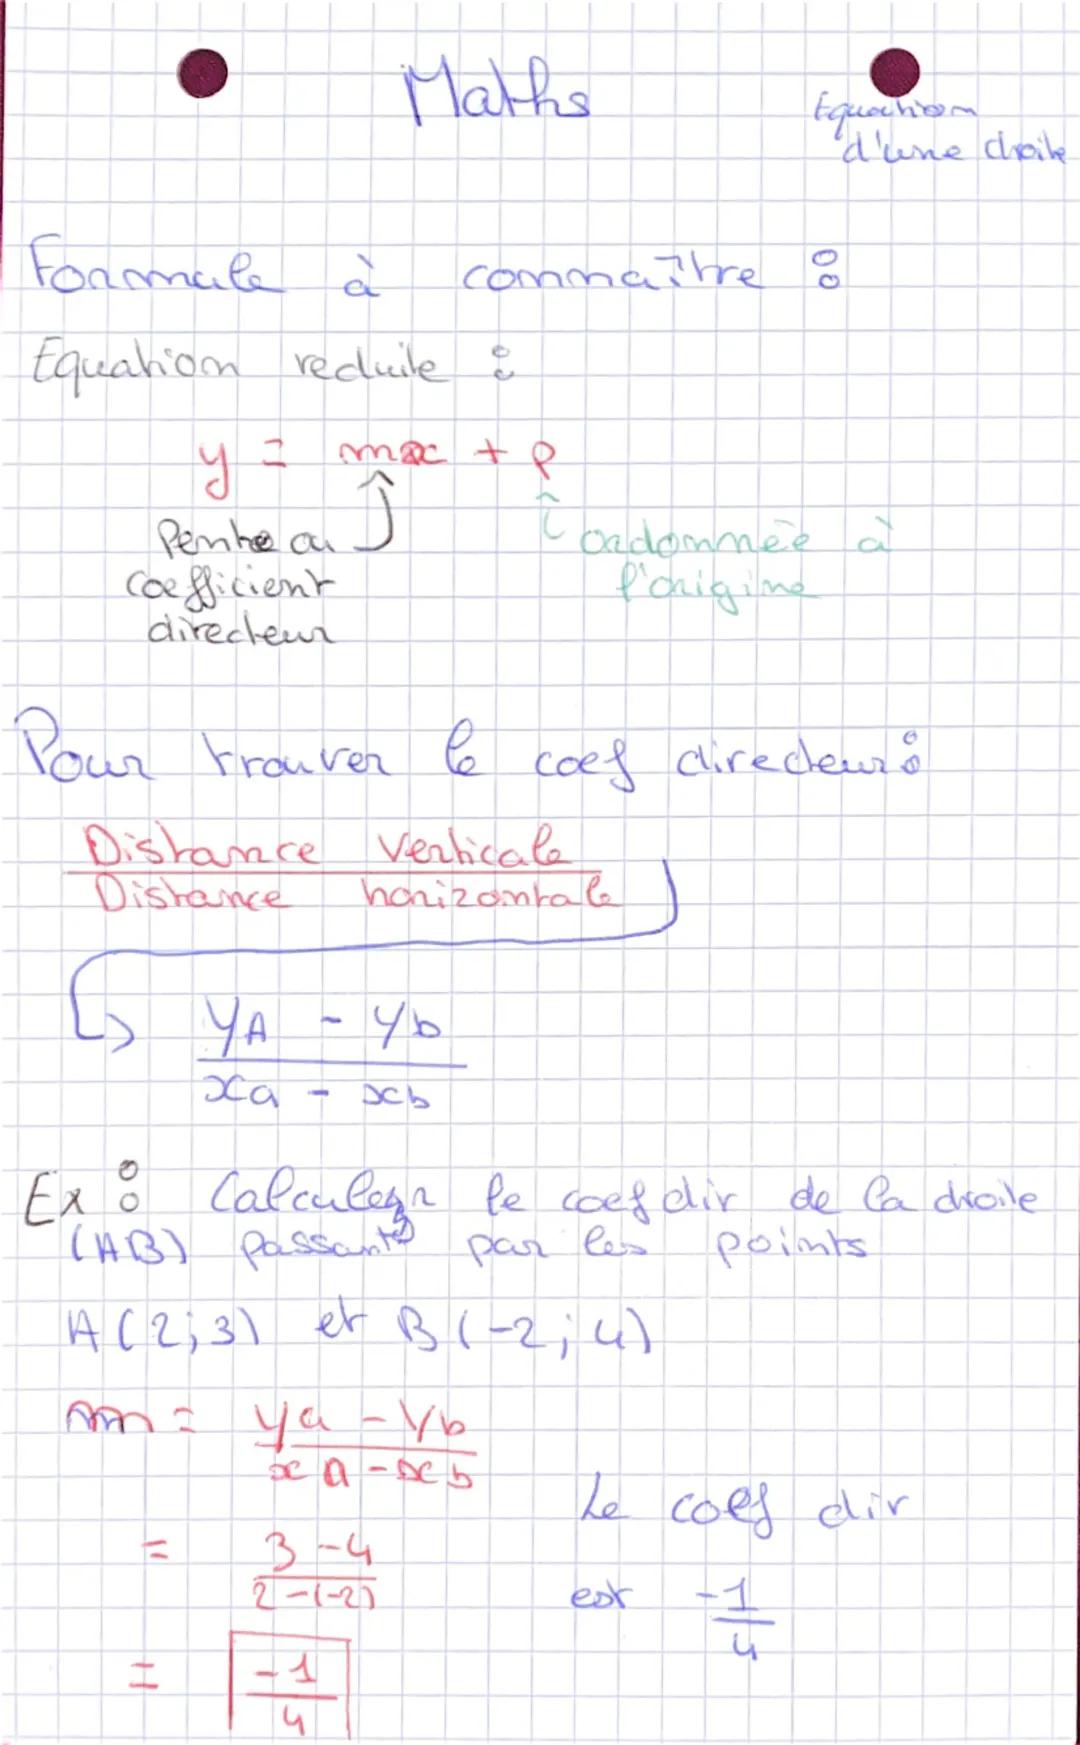 Maths
Equation
d'une droite
Formule à connaître :
Equation reduite :
y = mx + p
Pente ou
coefficient
directeur
ordonnée à
l'origine
Pour trouver le coef directeur :
Distance verticale
Distance horizontale
yA - yb
xa - xb
Ex : Calculer le coef dir de la droite
(AB) passant par les points
A (2;3) et B (-2;4)
m = ya - yb
xa - xb
= 3 - 4
2 - (-2)
= -1
4
Le coef dir
est -1
4